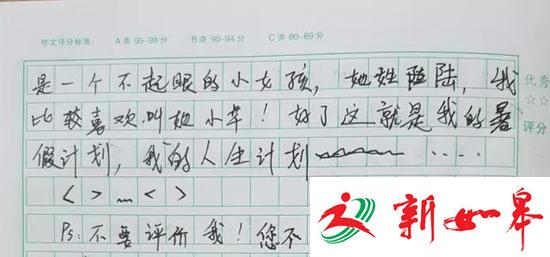 作文评分标准： A类 95-99分 B类 90-94分 C类 80-89分
是一个不起眼的小女孩，她姓陆，我
优秀
比较喜欢叫她小草！好了这就是我的暑
☆☆
评分
假计划，我的人生计划
<>…<>
Ps:不要评价我！您不
新如皋